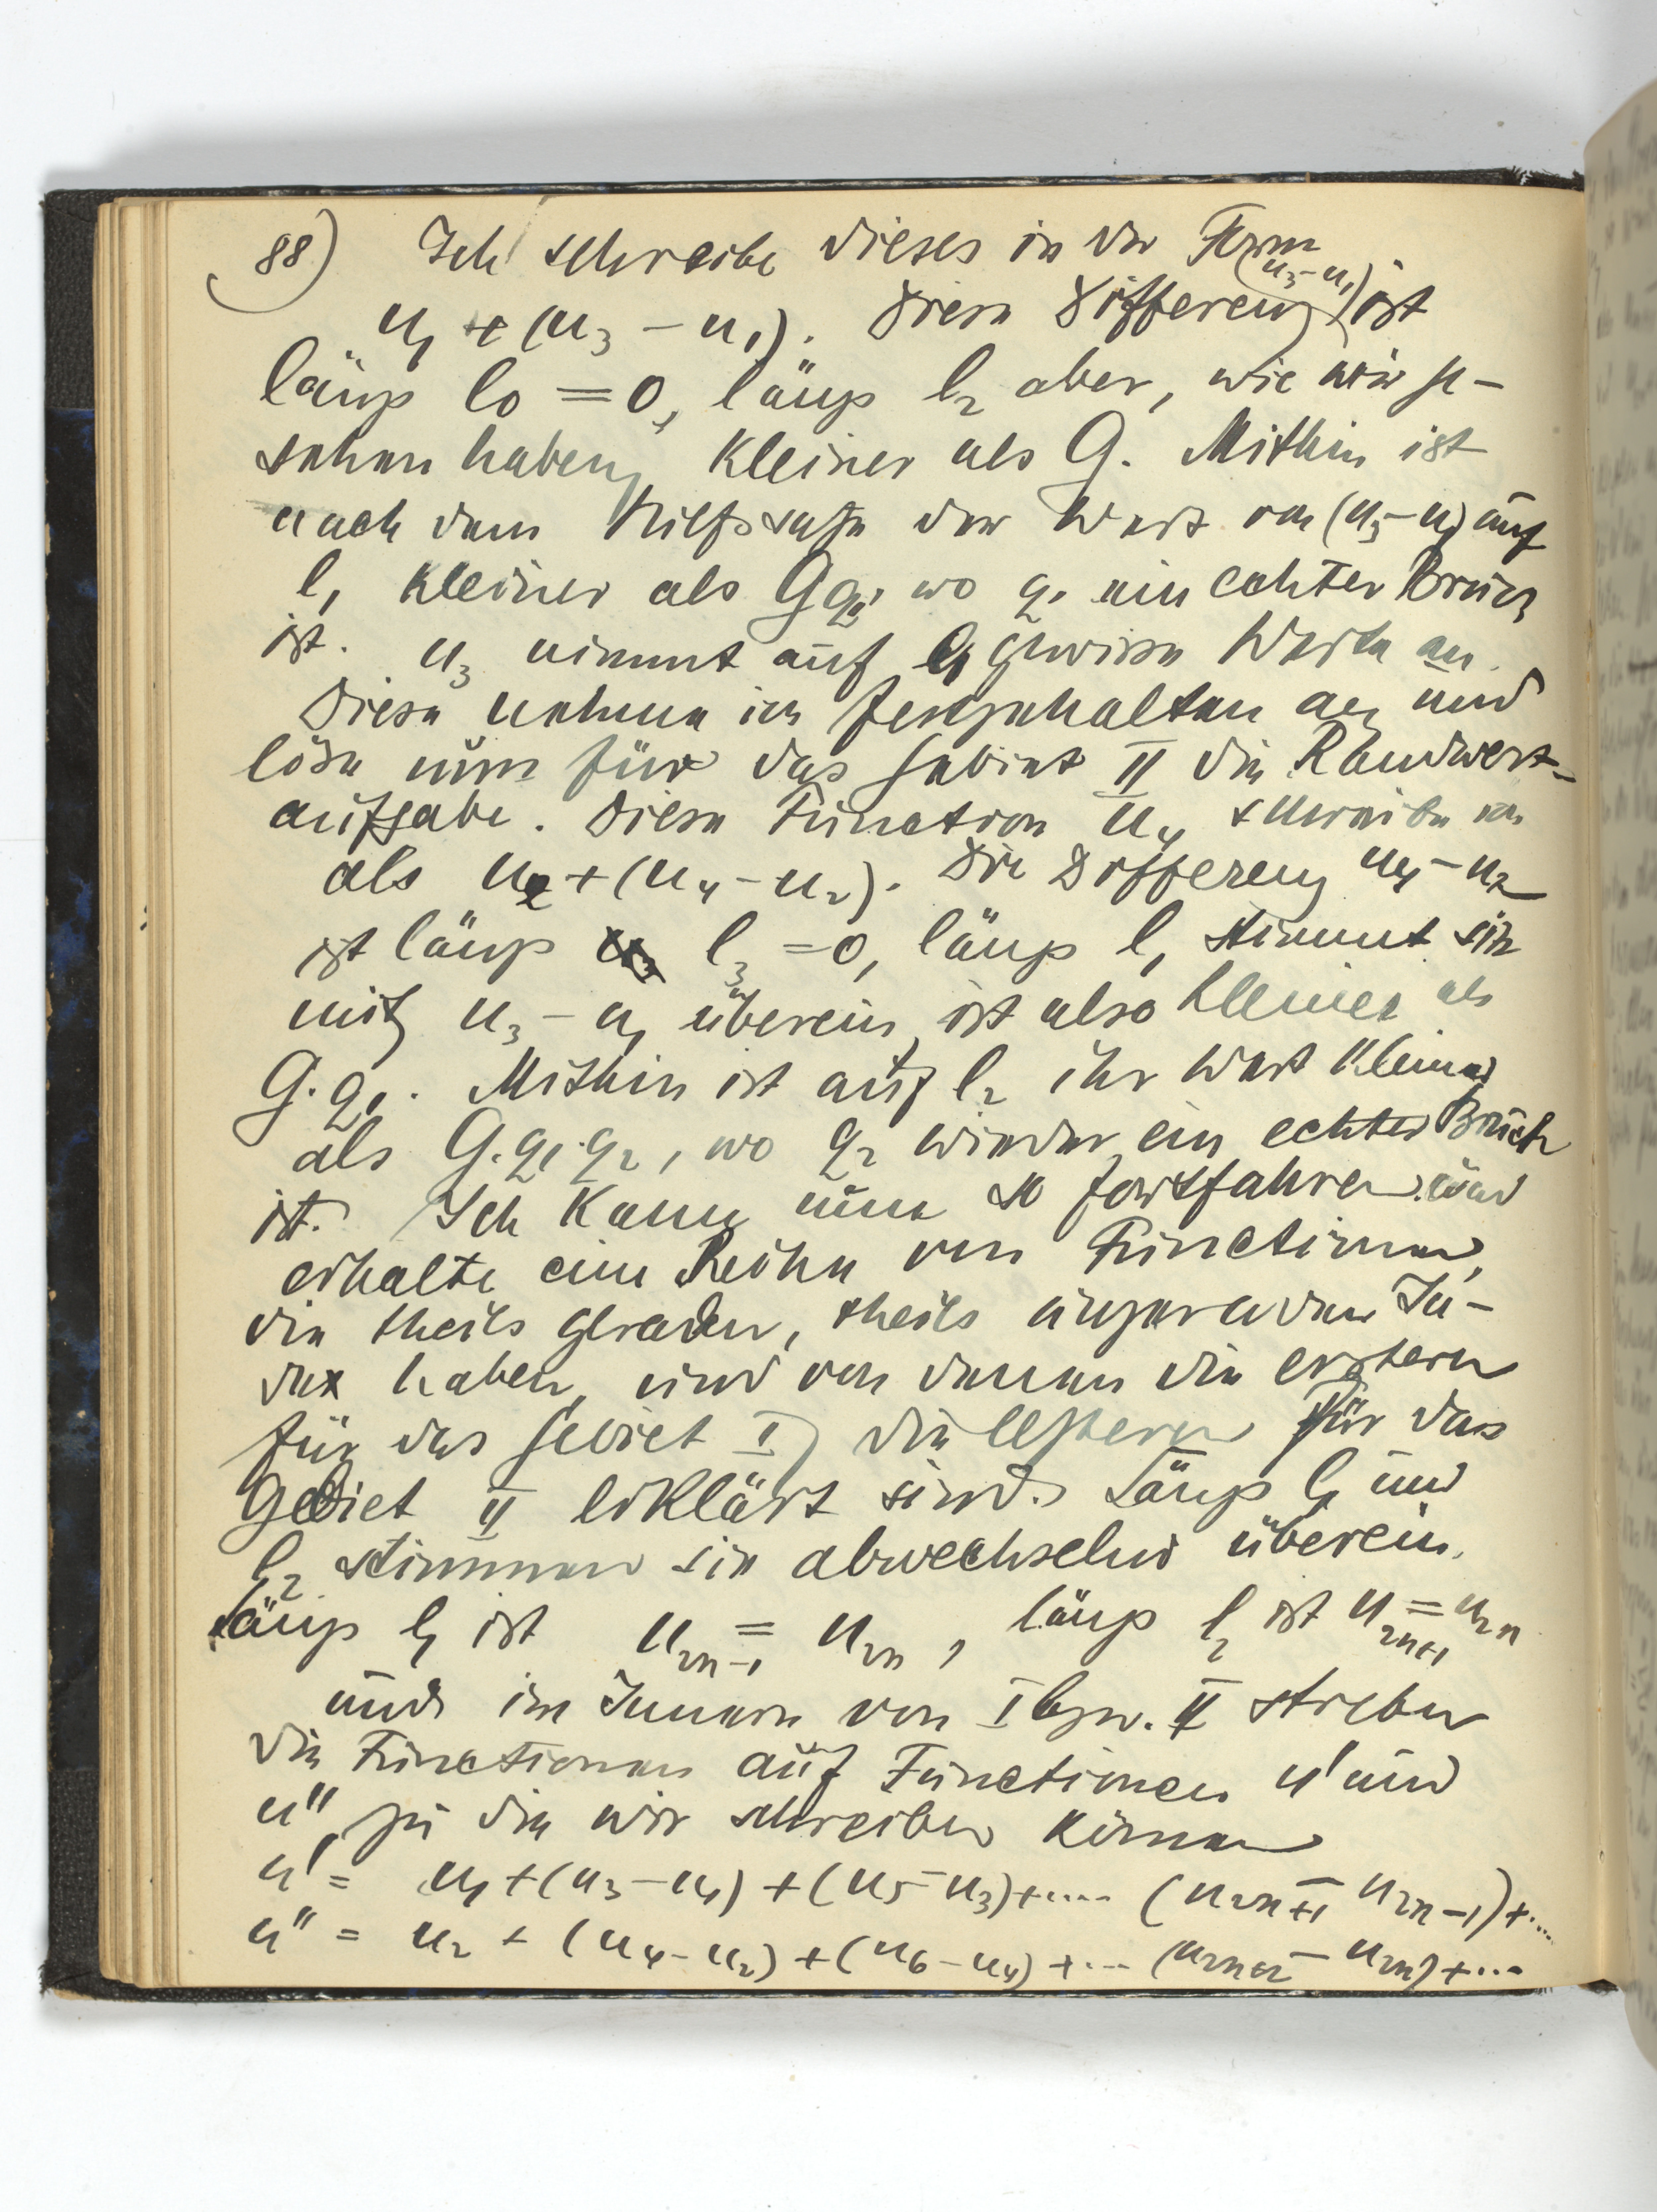 88) Ich schreibe dieses in der Form
u₁ + (u₃ − u₁). Diese Differenz (u₃−u₁) ist
längs l₀ = 0, längs l₂ aber, wie wir ge-
sehen haben, kleiner als G. Mithin ist
nach dem Hilfssatze der Wert von (u₃−u₁) auf
l₁ kleiner als Gq₁, wo q₁ ein echter Bruch
ist. u₃ nimmt auf l₁ gewisse Werte an.
Diese nehme ich festgehalten an und
löse nun für das Gebiet II die Randwert-
aufgabe. Diese Function u₄ schreibe ich
als u₂ + (u₄ − u₂). Die Differenz u₄ − u₂
ist längs l₃ = 0, längs l₁ stimmt sie
mit u₃ − u₁ überein, ist also kleiner als
G.q₁. Mithin ist auf l₂ ihr Wert kleiner
als G.q₁.q₂, wo q₂ wieder ein echter Bruch
ist. Ich kann nun so fortfahren und
erhalte eine Reihe von Functionen,
die theils geraden, theils ungeraden In-
dex haben, und von denen die erstern
für das Gebiet I, die letztern für das
Gebiet II erklärt sind. Längs l₁ und
l₂ stimmen sie abwechselnd überein.
Längs l₁ ist u₂ₙ₋₁ = u₂ₙ, längs l₂ ist u₂ₙ₊₁ = u₂ₙ
und im Innern von I bzw. II streben
die Functionen auf Functionen u' und
u'' zu die wir schreiben können
u' = u₁ + (u₃ − u₁) + (u₅ − u₃) + .... (u₂ₙ₊₁ − u₂ₙ₋₁) + ....
u'' = u₂ + (u₄ − u₂) + (u₆ − u₄) + ... (u₂ₙ₊₂ − u₂ₙ) + ...